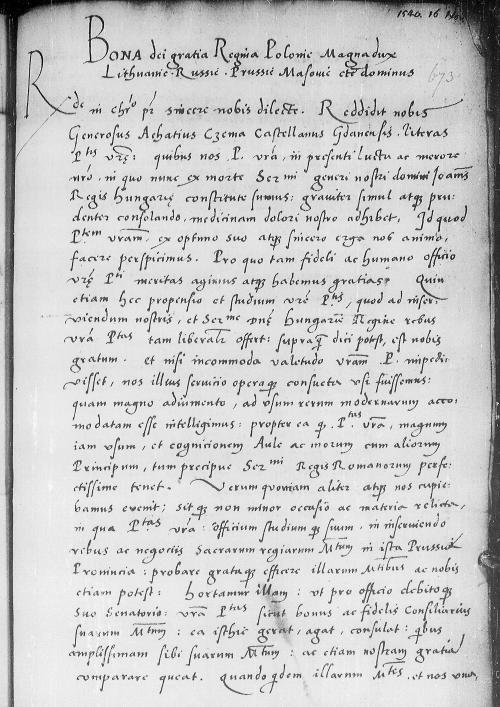 1540. 16 No
673
BONA dei gratia Regina Polonie Magnadux
Lithuanie. Russie. Prussie Masovie etc dominus
Rde in chro pr sincere nobis dilecte. Reddidit nobis
Generosus Achatius Czema Castellanus Gdanensis. literas
Ptis vre: quibus nos. P. vra, in presenti luctu ac merore
nro, in quo nunc ex morte Sermi generi nostri domini Joanis
Regis Hungarie constitute sumus: graviter simul atq pru-
denter consolando, medicinam dolori nostro adhibet, Id quod
Ptem vram, ex optimo suo atq sincero erga nos animo,
facere perspicimus. Pro quo tam fideli ac humano officio
vre Pti meritas agimus atq habemus gratias. Quin
etiam hec propensio et studium vre Ptis, quod ad inser-
viendum nostris, et Serme dne Hungarie Regine rebus
vra Ptas tam liberalr offert: supraq dici potest, est nobis
gratum. Et nisi incommoda valetudo vram P. impedi-
visset, nos illius servicio operaq consueta usi fuissemus:
quam magno adiumento, ad usum rerum modernarum acco-
modatam esse intelligimus: propter ea q P.tas vra, magnum
iam usum, et cognicionem Aule ac morum cum aliorum
Principum, tum precipue Sermi Regis Romanorum perfe-
ctissime tenet. Verum quoniam aliter atq nos cupie-
bamus evenit; sit q non minor occasio ac materia relicta,
in qua Ptas vra: officium studium q suum, in inserviendo
rebus ac negociis Sacrarum regiarum Mtum in ista Prussie
Provincia: probare gratuq efficere illarum Mtibus ac nobis
etiam potest: Hortamur illam: ut pro officio debitoq
suo Senatorio: vra Ptas sicut bonus ac fidelis Consiliarius
suarum Mtum: ea isthic gerat, agat, consulat: qbus
amplissimam sibi suarum Mtum: ac etiam nostram gratia
comparare queat. Quando qdem illarum Mtes. et nos una,